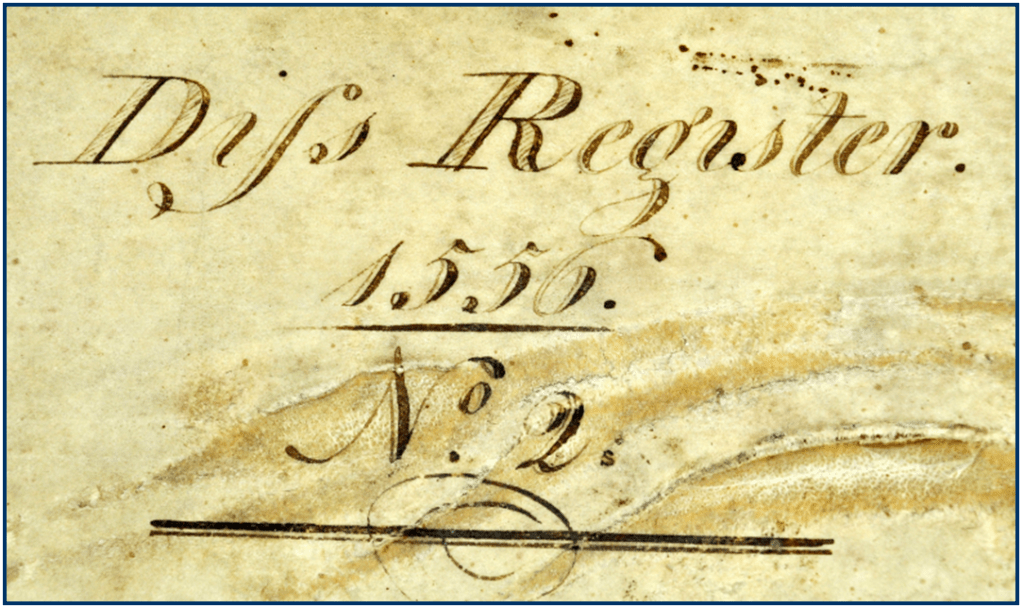 Diſs Register.
1556.
No. 2.